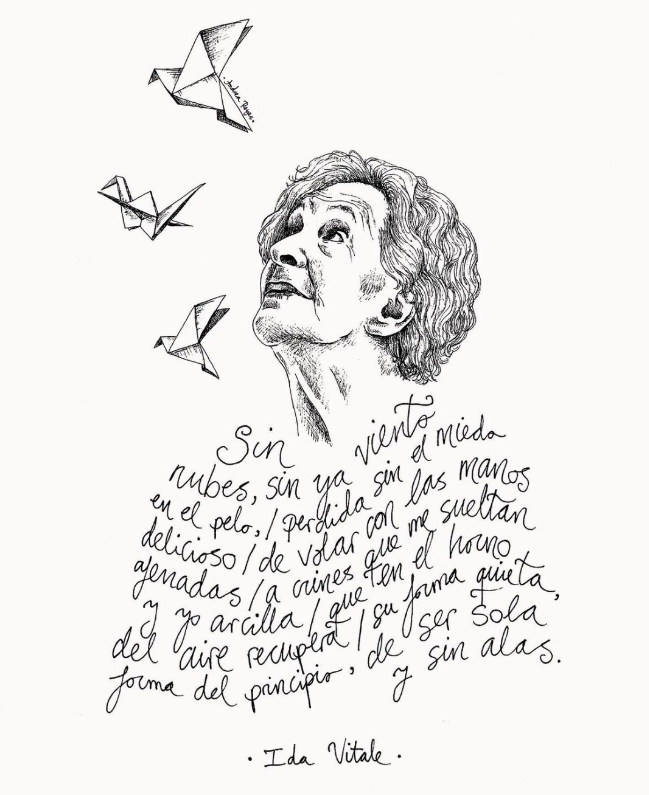 Sin
nubes, sin ya viento
en el pelo, / perdida sin el miedo
delicioso / de volar con las manos
ajenadas / a crines que me sueltan
y yo arcilla / que en el horno
del aire recupera / su forma quieta,
forma del principio, de ser sola
y sin alas.
· Ida Vitale ·